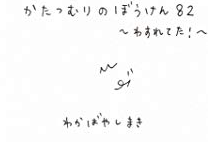 かたつむりのぼうけん82
～わすれてた!～
わかばやしまき